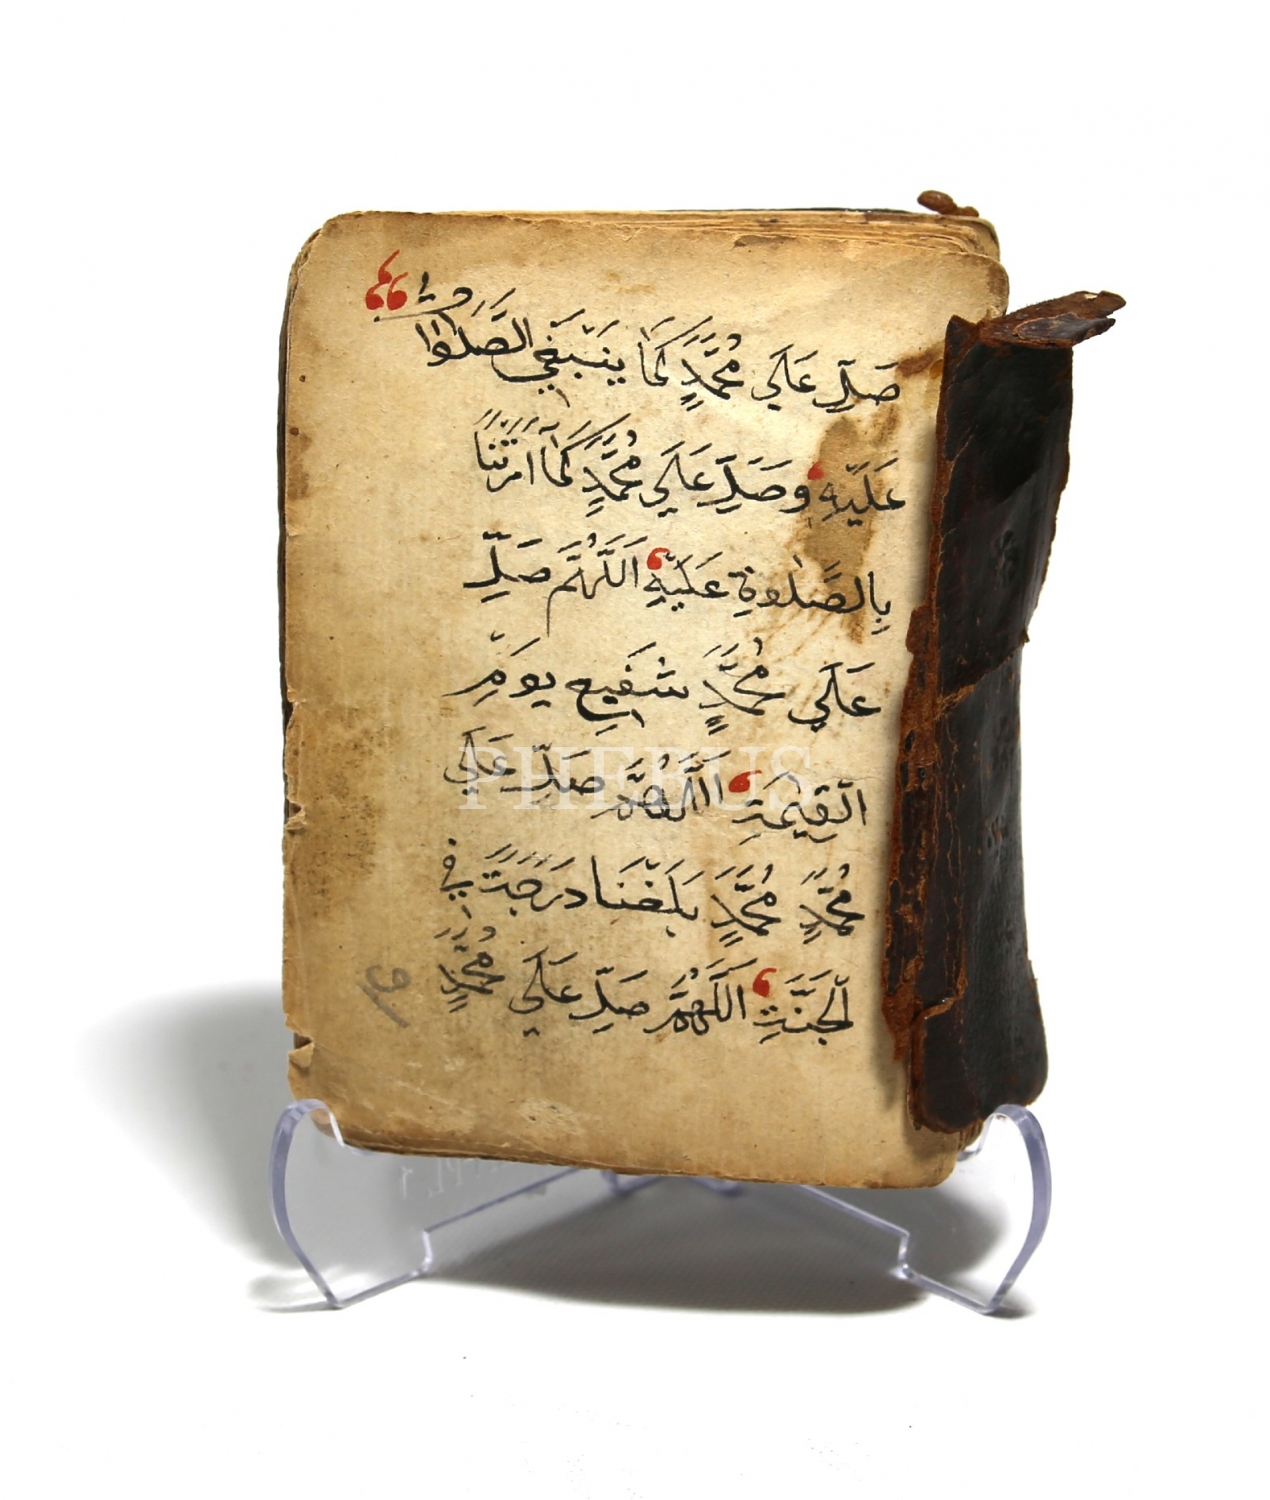 صَلِّ عَلَي مُحَمَّدٍ كَمَا يَنْبَغِي الصَّلَواةُ
عَلَيْهِ وَصَلِّ عَلَي مُحَمَّدٍ كَمَا اَمَرْتَنَا
بِالصَّلٰوةِ عَلَيْهِ اَللّٰهُمَّ صَلِّ
عَلَي مُحَمَّدٍ شَفِيعِ يَوْمِ
الْقِيٰمَةِ اَللّٰهُمَّ صَلِّ عَلَي
PHEBUS
مُحَمَّدٍ مُحَمَّدٍ بَلَغْنَا دَرَجَتَ فِي
الْجَنَّتِ اَللّٰهُمَّ صَلِّ عَلَي مُحَمَّدٍ